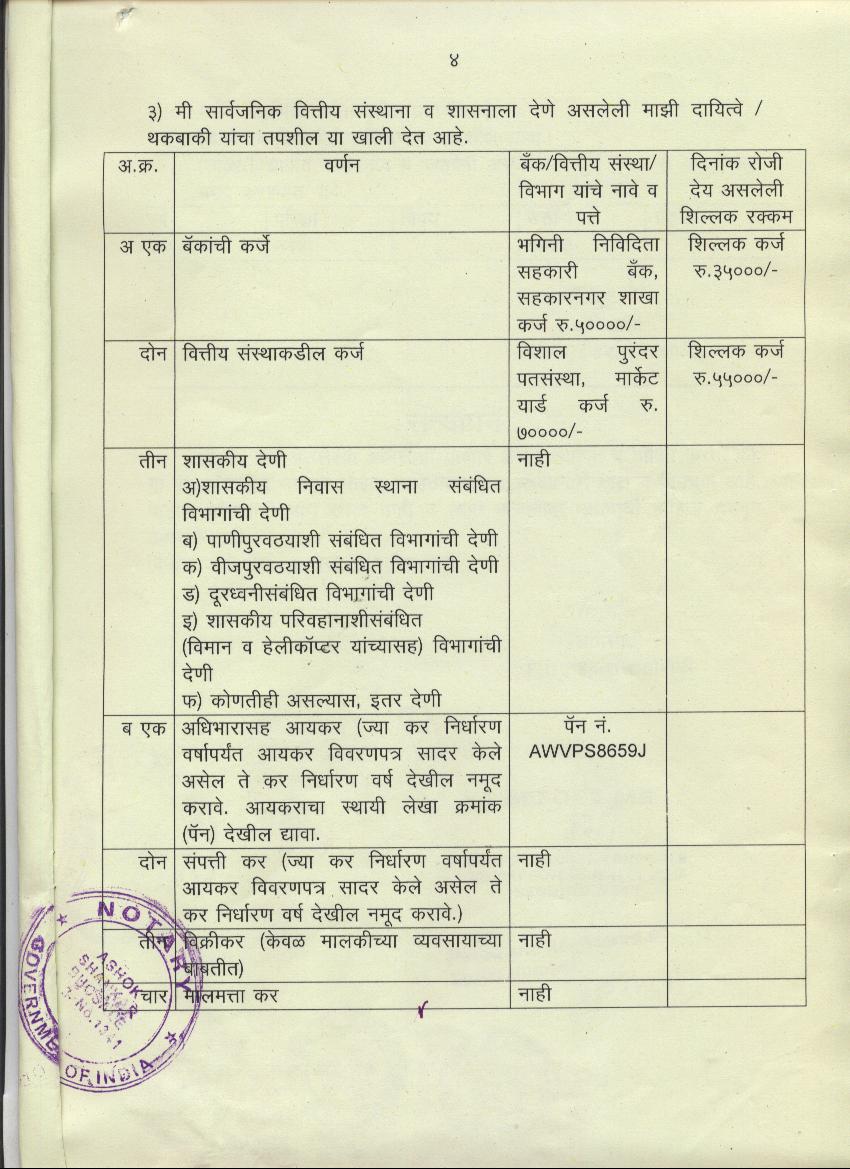 ४
३) मी सार्वजनिक वित्तीय संस्थाना व शासनाला देणे असलेली माझी दायित्वे /
थकबाकी यांचा तपशील या खाली देत आहे.
अ.क्र. वर्णन बँक/वित्तीय संस्था/ दिनांक रोजी
विभाग यांचे नावे व देय असलेली
पत्ते शिल्लक रक्कम
अ एक बॅकांची कर्जे भगिनी निविदिता शिल्लक कर्ज
सहकारी बँक, रु.३५०००/-
सहकारनगर शाखा
कर्ज रु.५००००/-
दोन वित्तीय संस्थाकडील कर्ज विशाल पुरंदर शिल्लक कर्ज
पतसंस्था, मार्केट रु.५५०००/-
यार्ड कर्ज रु.
७००००/-
तीन शासकीय देणी नाही
अ)शासकीय निवास स्थाना संबंधित
विभागांची देणी
ब) पाणीपुरवठयाशी संबंधित विभागांची देणी
क) वीजपुरवठयाशी संबंधित विभागांची देणी
ड) दूरध्वनीसंबंधित विभागांची देणी
इ) शासकीय परिवहानाशीसंबंधित
(विमान व हेलीकॉप्टर यांच्यासह) विभागांची
देणी
फ) कोणतीही असल्यास, इतर देणी
ब एक अधिभारासह आयकर (ज्या कर निर्धारण पॅन नं.
वर्षापर्यंत आयकर विवरणपत्र सादर केले AWVPS8659J
असेल ते कर निर्धारण वर्ष देखील नमूद
करावे. आयकराचा स्थायी लेखा क्रमांक
(पॅन) देखील द्यावा.
दोन संपत्ती कर (ज्या कर निर्धारण वर्षापर्यंत नाही
आयकर विवरणपत्र सादर केले असेल ते
कर निर्धारण वर्ष देखील नमूद करावे.)
तीन विक्रीकर (केवळ मालकीच्या व्यवसायाच्या नाही
बाबतीत)
चार मालमत्ता कर नाही
NOTARY
ASHOK
OF INDIA